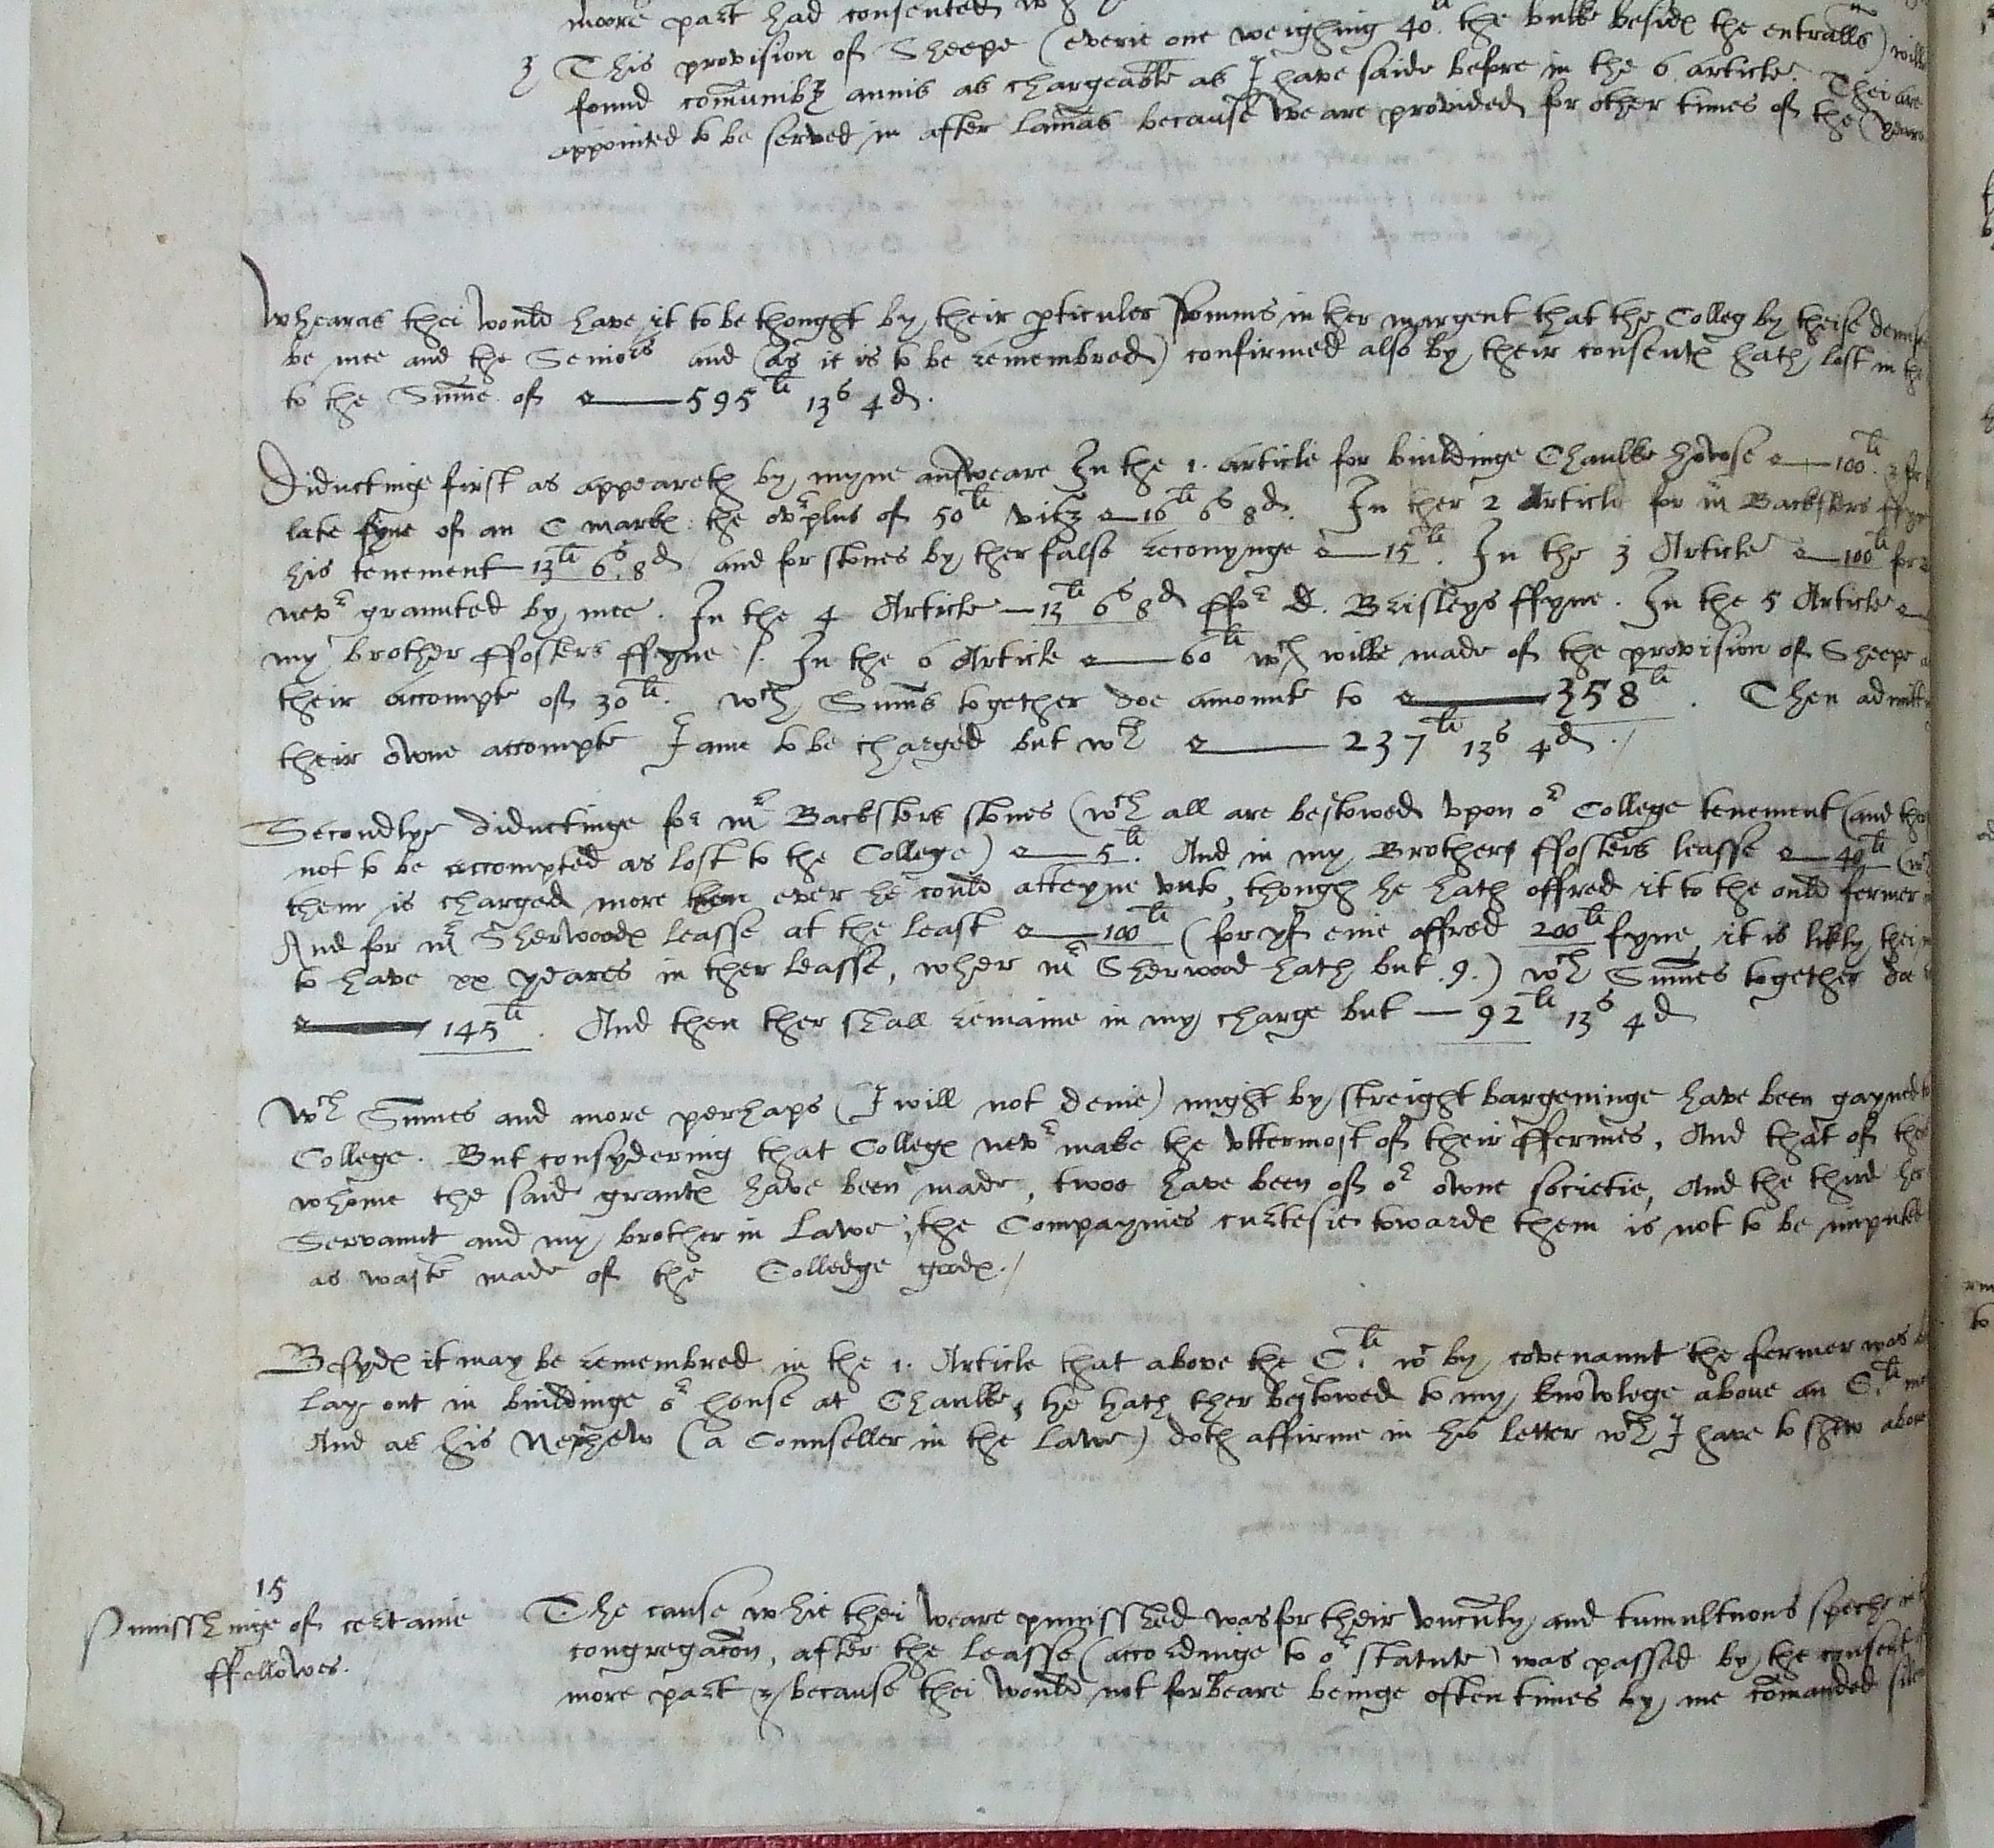 moore part had consented
3 This provision of Sheepe (everie one weighing 40.li the bulke besides the entralls) wilbe
found com̄unibꝫ annis as chargeable as I have saide before in the 6 article. Thei are
appointed to be served in after lam̄as because we are provided for other times of the yeare
Whearas thei would have it to be thought by their ꝑticuler somms in ther margent that the Colleg by theise
be mee and the Seniors and (as it is to be remembred) confirmed also by their consents hath lost in the
to the Sum̄e of 595li 13s 4d.
Diductinge first as appeareth by myne answeare In the 1. article for buildinge Chaulke howse 100li.
late fyne of an C marks the ovrplus of 50li vitz 16li 6s 8d. In ther 2 Article for mr Backsters ffyne
his tenement 13li 6s 8d and for stones by ther false reconynge 15li. In the 3 Article 100li for
nevr graunted by mee. In the 4 Article 13li 6s 8d ffor D. Brisleys ffyne. In the 5 Article
my brother ffosters ffyne /. In the 6 Article 60li wch wilbe made of the provision of Sheepe
their accompte of 30li. wch Sum̄s together doe amounte to 358li. Then admitt
their owne accompte I ame to be charged but wth 237li 13s 4d./
Secondlye diductinge for mr Backsters stones (wch all are bestowed vpon or College tenement (and
not to be accompted as lost to the College) 5li. And in my Brothers ffosters leasse 40li
them is charged more then ever he could atteyne vnto, though he hath offred it to the ould fermer
And for mr Sherwoods leasse at the least 100li (for yf enie offred 200li fyne, it is likly thei
to have xx yeares in ther leasse, wher mr Sherwood hath but .9.) wch Sum̄es together doe
145li. And then ther shall remaine in my charge but 92li 13s 4d
Wch Sum̄es and more perhaps (I will not denie) might by streight bargeninge have been gayned
College. But consydering that Colleges nevr make the vttermost of their ffermes, And that of
whome the said grants have been made, twoe have been of or owne societie, And the third her
Servaunt and my brother in Lawe, the Compaynies curtesie towards them is not to be
as waste made of the Colledge goods./
Besyds it may be remembred in the 1. Article that above the C.li wch by covenaunt the fermer was
lay out in buildinge or house at Chaulke, he hath ther bestowed to my knowlege above an C.li
And as his Nephew (a Counseller in the Lawe) doth affirme in his letter wch I have to shew above
15
Punisshinge of certaine
ffellowes.
The cause whie thei weare punisshed was for their vncurtly and tumultuous speche
congregac̄on, after the leasse (accordinge to or statute) was passed by the consent
more part & because thei would not forbeare beinge often times by me com̄anded